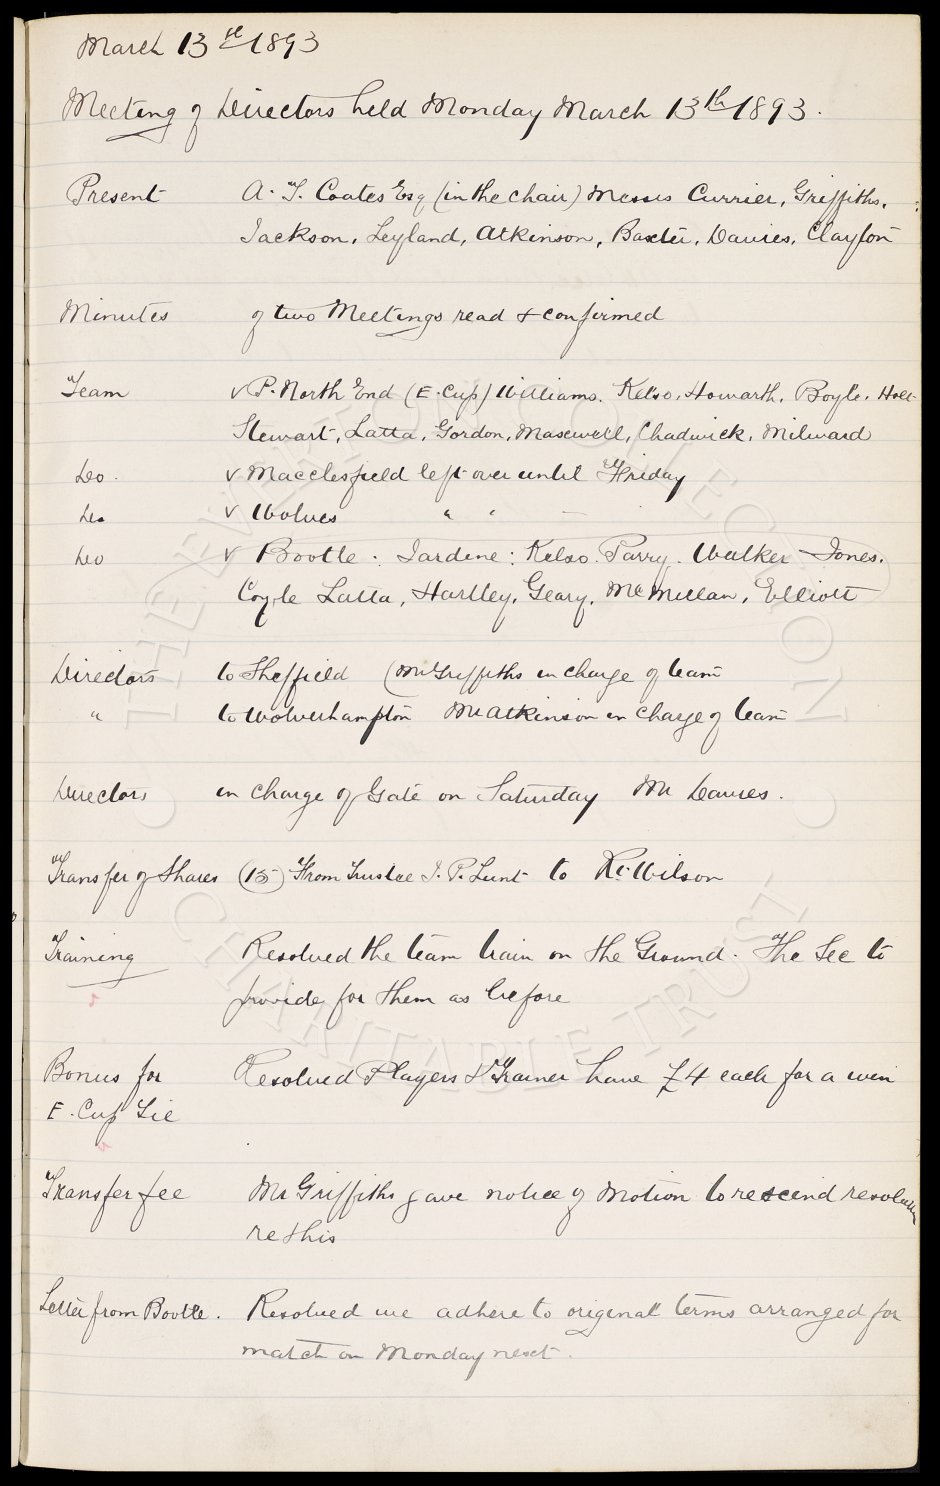 March 13th 1893
Meeting of Directors held Monday March 13th 1893.
Present A. T. Coates Esq (in the chair) Messrs Currier, Griffiths,
Jackson, Leyland, Atkinson, Baxter, Davies, Clayton
Minutes of two Meetings read & confirmed
Team v P. North End (E. Cup) Williams. Kelso, Howarth, Boyle, Holt
Stewart, Latta, Gordon, Maxwell, Chadwick, Milward
Do. v Macclesfield left over until Friday
Do v Wolves " "
Do v Bootle. Jardine: Kelso. Parry. Walker Jones.
Coyle Latta, Hartley, Geary, McMillan, Elliott
Directors to Sheffield (Mr Griffiths in charge of team
" to Wolverhampton Mr Atkinson in charge of team
Directors in charge of Gate on Saturday Mr Davies.
Transfer of Shares (15) From Trustee J. P. Lunt to R. Wilson
Training Resolved the team train on the Ground. The Sec to
provide for them as before
Bonus for Resolved Players & Trainer have £4 each for a win
E. Cup Tie
Transfer fee Mr Griffiths gave notice of Motion to rescind resolution
re this
Letter from Bootle. Resolved we adhere to original terms arranged for
match on Monday next.
THE EVERTON COLLECTION
CHARITABLE TRUST